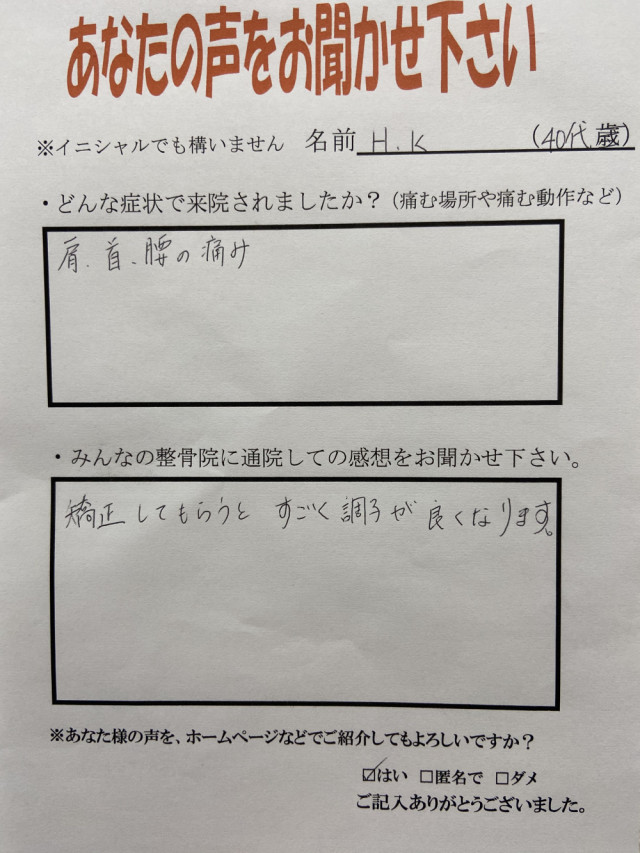 あなたの声をお聞かせ下さい
※イニシャルでも構いません 名前 H.K (40代歳)
・どんな症状で来院されましたか？(痛む場所や痛む動作など)
肩、首、腰の痛み
・みんなの整骨院に通院しての感想をお聞かせ下さい。
矯正してもらうと すごく調子が良くなります。
※あなた様の声を、ホームページなどでご紹介してもよろしいですか？
☑はい □匿名で □ダメ
ご記入ありがとうございました。